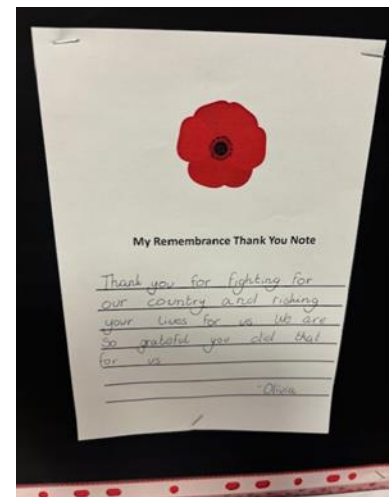 My Remembrance Thank You Note
Thank you for fighting for
our country and risking
your lives for us We are
So grateful you did that
for us
-Olivia